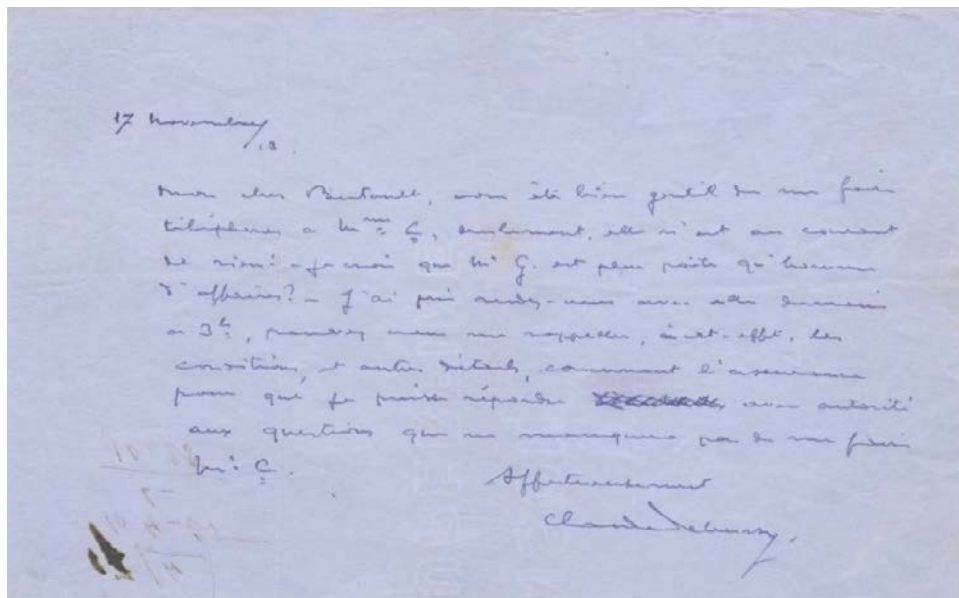 17 novembre
/13.
Mon cher Bertault, vous êtes bien gentil de me faire
téléphoner à Mme C, seulement, elle n'est au courant
de rien! - Je crois que Mr G. est plus poète qu'homme
d'affaires? - J'ai pris rendez-vous avec elle demain
à 3h, pourrez vous me rappeler, à cet-effet, les
conditions, et autres détails, concernant l'assurance
pour que je puisse répondre avec autorité
aux questions que ne manquera pas de me faire
Mme C.
Affectueusement
Claude Debussy.